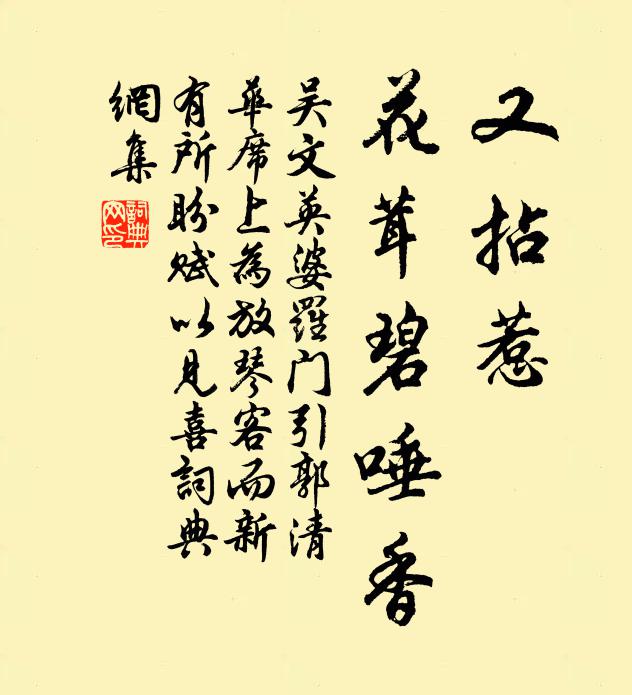 又拈惹
花茸碧唾香
吴文英婆羅门引郭清
華席上為放琴客而新
有所盼赋以见喜詞典
網集
詞典
网印